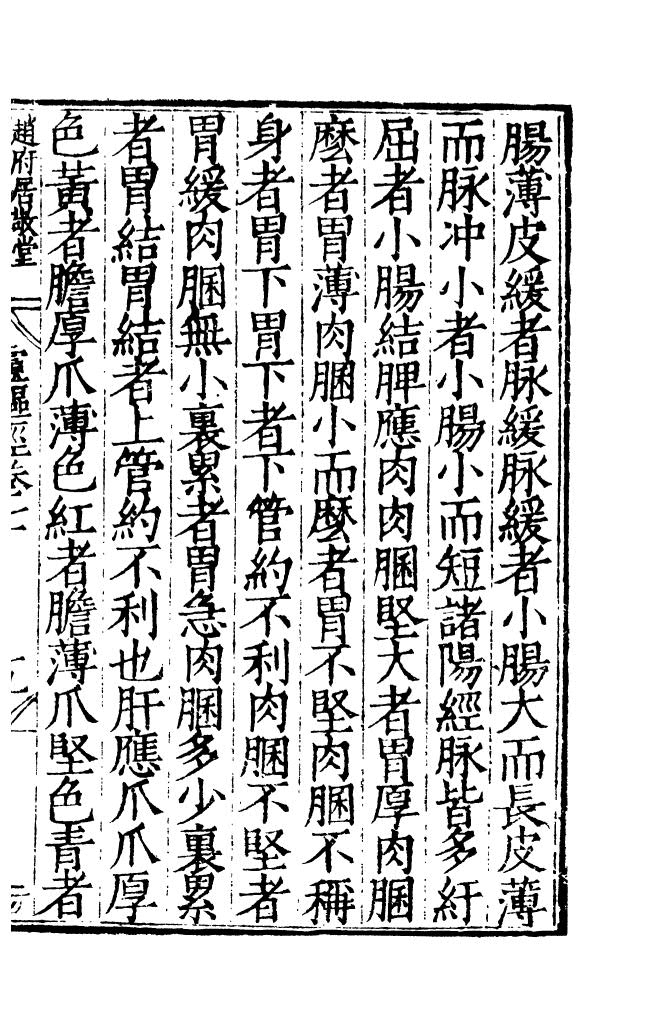 腸薄皮緩者脉緩脉緩者小腸大而長皮薄
而脉冲小者小腸小而短諸陽經脉皆多紆
屈者小腸結脾應肉肉䐃堅大者胃厚肉䐃
麼者胃薄肉䐃小而麼者胃不堅肉䐃不稱
身者胃下胃下者下管約不利肉䐃不堅者
胃緩肉䐃無小裏累者胃急肉䐃多少裏累
者胃結胃結者上管約不利也肝應爪爪厚
色黃者膽厚爪薄色紅者膽薄爪堅色青者
趙府居敬堂